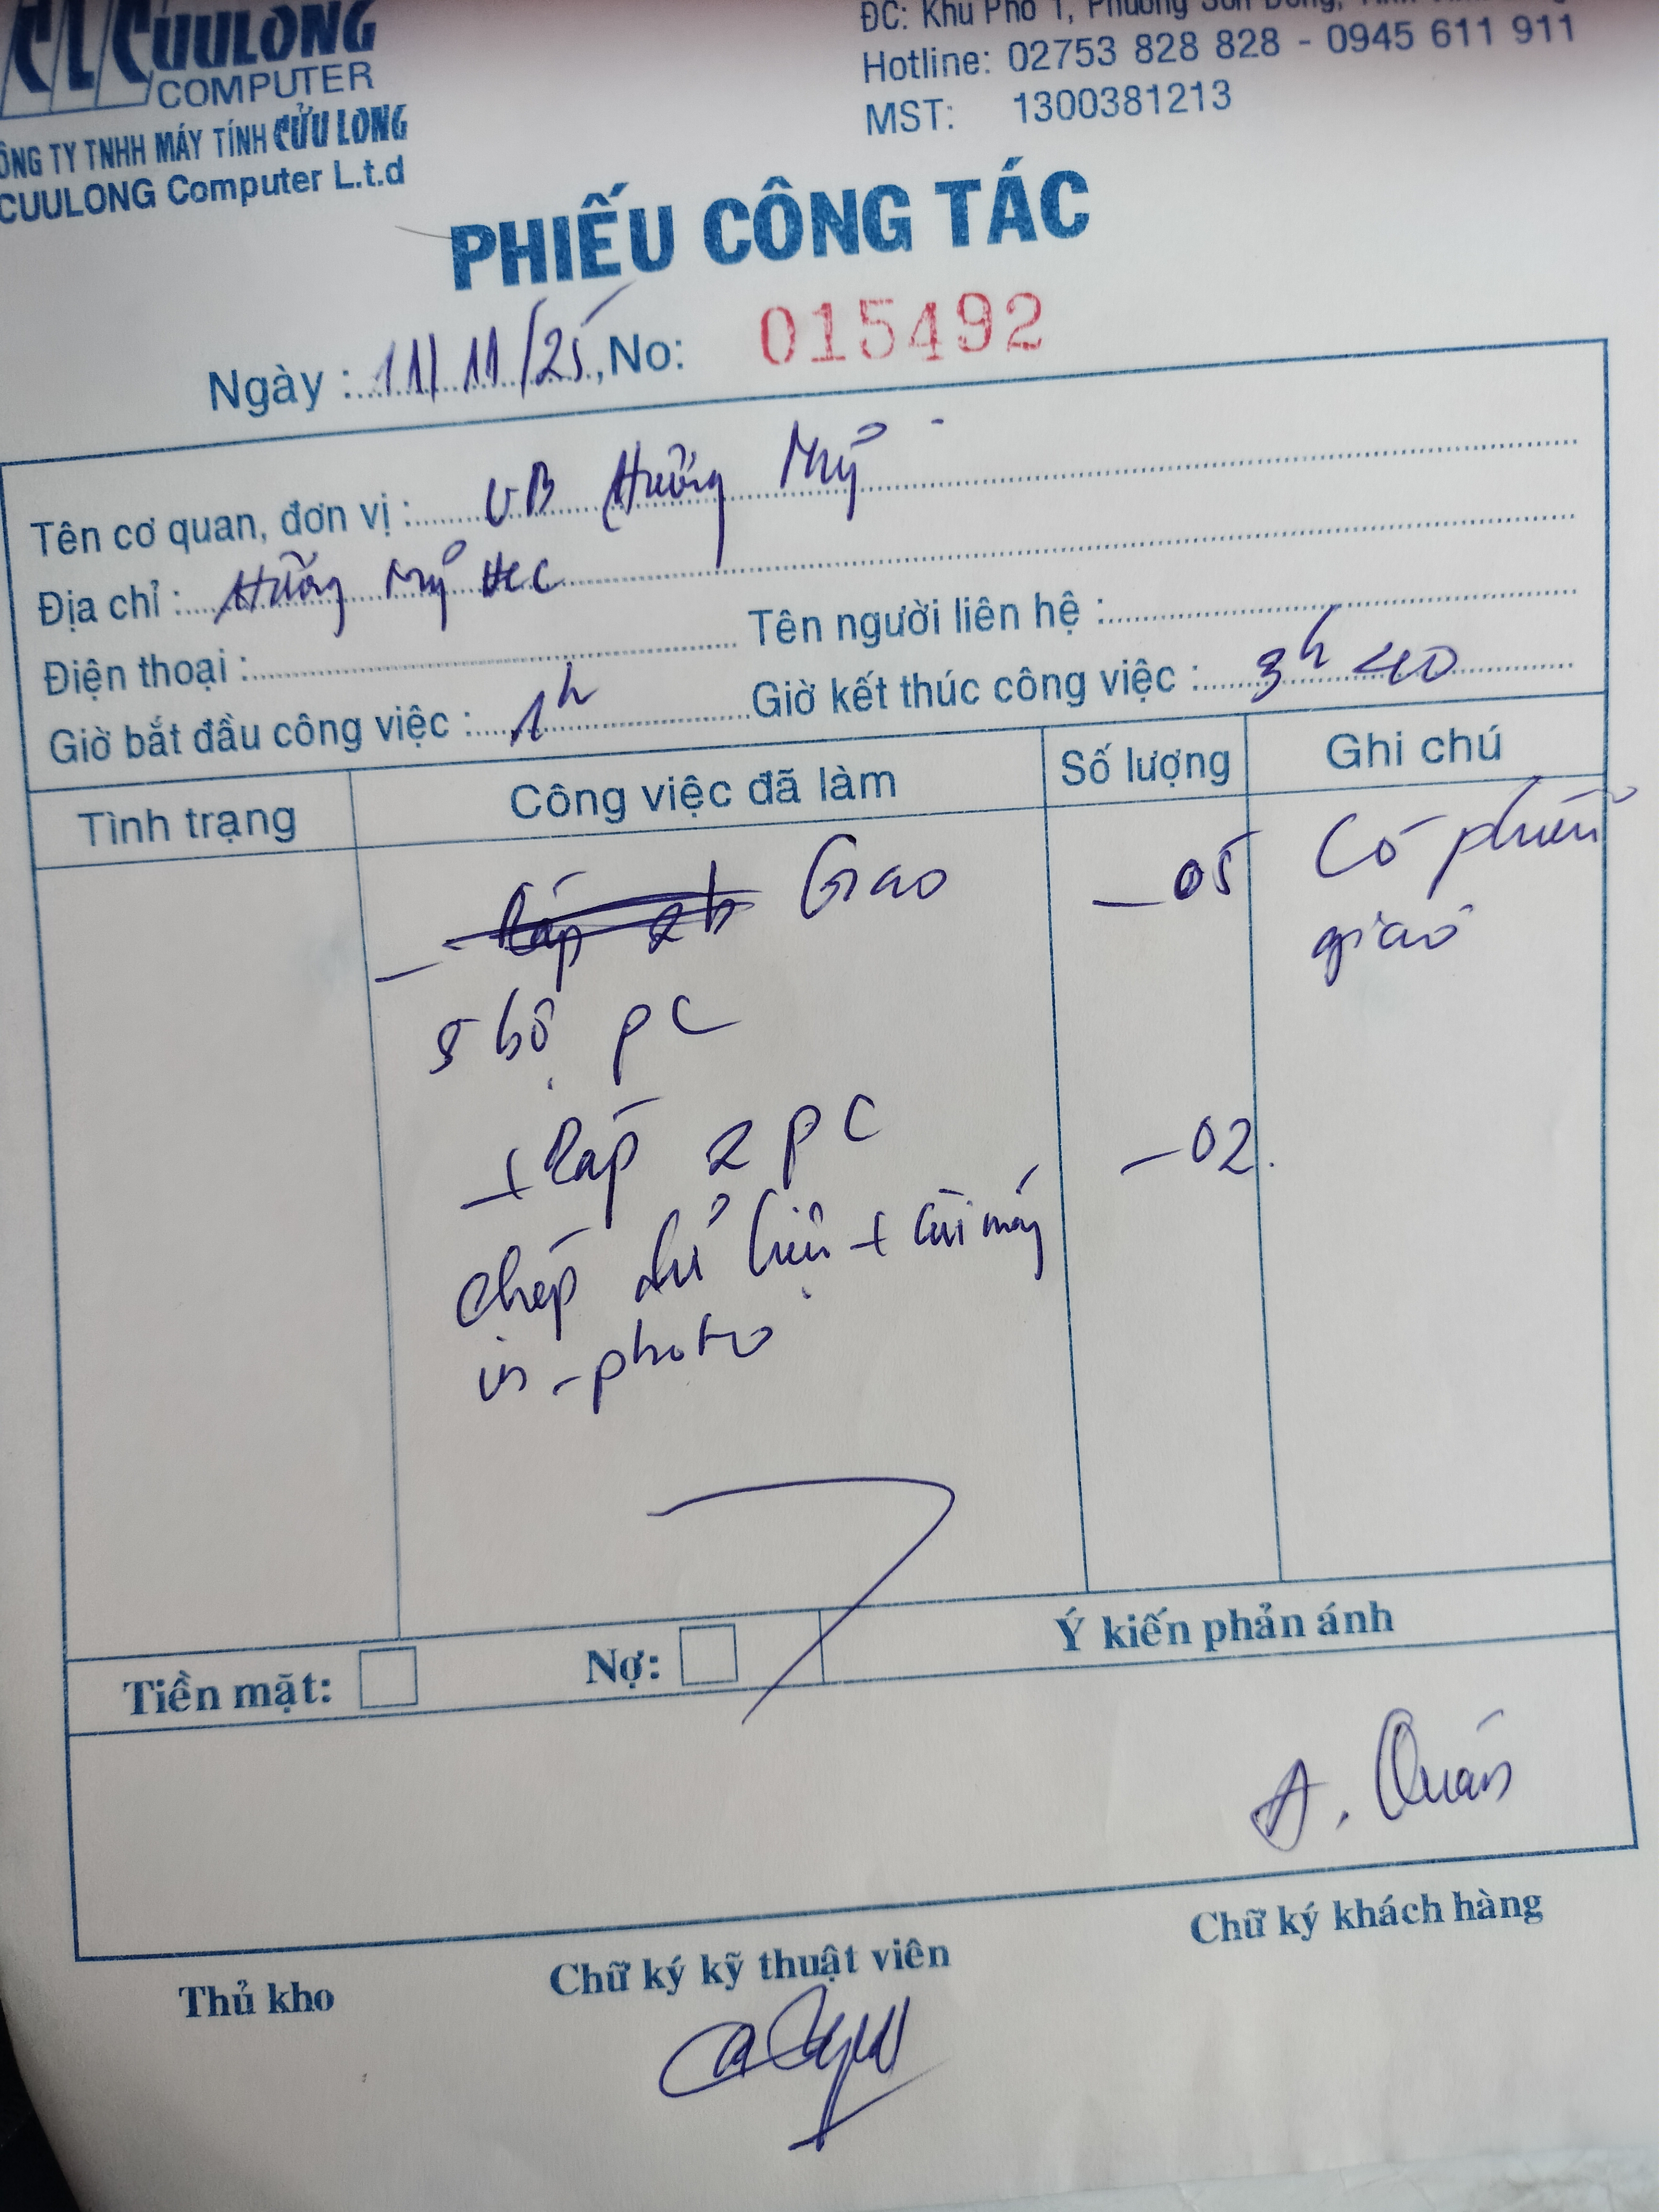 CLCUULONG
COMPUTER
ÔNG TY TNHH MÁY TÍNH CỬU LONG
CUULONG Computer L.t.d
ĐC: Khu Phố 1, Phường Sơn Đông,
Hotline: 02753 828 828 - 0945 611 911
MST: 1300381213
PHIẾU CÔNG TÁC
Ngày : 11/11/25, No: 015492
Tên cơ quan, đơn vị : UB Hương Mỹ
Địa chỉ : Hương Mỹ
Điện thoại : Tên người liên hệ :
Giờ bắt đầu công việc : 1h Giờ kết thúc công việc : 3h 40
Tình trạng Công việc đã làm Số lượng Ghi chú
- Giao - 05 Có phiếu
5 bộ pc giao
+ Ráp 2 pc - 02.
chép dữ liệu + cài máy
in - photo
Tiền mặt: Nợ: Ý kiến phản ánh
A. Quán
Thủ kho Chữ ký kỹ thuật viên Chữ ký khách hàng